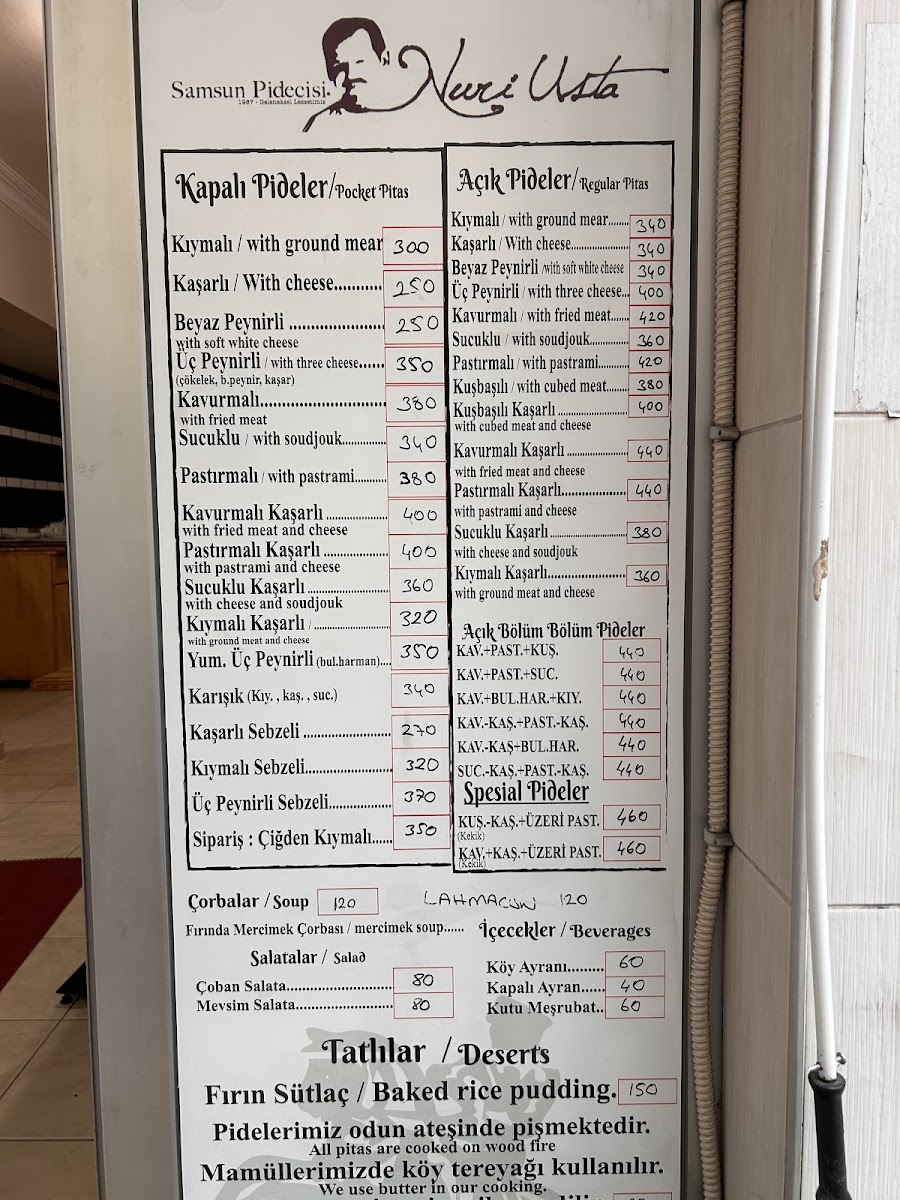 Samsun Pidecisi
1987 - Geleneksel Lezzetimiz
Nuri Usta
Kapalı Pideler/Pocket Pitas
Kıymalı / with ground mear 300
Kaşarlı / With cheese........... 250
Beyaz Peynirli ...................... 250
with soft white cheese
Üç Peynirli / with three cheese...... 350
(çökelek, b.peynir, kaşar)
Kavurmalı............................. 380
with fried meat
Sucuklu / with soudjouk................. 340
Pastırmalı / with pastrami.......... 380
Kavurmalı Kaşarlı ............... 400
with fried meat and cheese
Pastırmalı Kaşarlı ................ 400
with pastrami and cheese
Sucuklu Kaşarlı .................... 360
with cheese and soudjouk
Kıymalı Kaşarlı / .................. 320
with ground meat and cheese
Yum. Üç Peynirli (bul.harman).... 350
Karışık (Kıy. , kaş. , suc.) 340
Kaşarlı Sebzeli ..................... 270
Kıymalı Sebzeli..................... 320
Üç Peynirli Sebzeli................ 370
Sipariş : Çiğden Kıymalı...... 350
Açık Pideler/Regular Pitas
Kıymalı / with ground mear....... 340
Kaşarlı / With cheese.................... 340
Beyaz Peynirli /with soft white cheese 340
Üç Peynirli / with three cheese... 400
Kavurmalı / with fried meat....... 420
Sucuklu / with soudjouk.............. 360
Pastırmalı / with pastrami.......... 420
Kuşbaşılı / with cubed meat........ 380
Kuşbaşılı Kaşarlı .................... 400
with cubed meat and cheese
Kavurmalı Kaşarlı .................. 440
with fried meat and cheese
Pastırmalı Kaşarlı.................. 440
with pastrami and cheese
Sucuklu Kaşarlı ...................... 380
with cheese and soudjouk
Kıymalı Kaşarlı....................... 360
with ground meat and cheese
Açık Bölüm Bölüm Pideler
KAV.+PAST.+KUŞ. 440
KAV.+PAST.+SUC. 440
KAV.+BUL.HAR.+KIY. 440
KAV.-KAŞ.+PAST.-KAŞ. 440
KAV.-KAŞ+BUL.HAR. 440
SUC.-KAŞ.+PAST.-KAŞ. 440
Spesial Pideler
KUŞ.-KAŞ.+ÜZERİ PAST. 460
(Kekik)
KAV.+KAŞ.+ÜZERİ PAST. 460
(Kekik)
Çorbalar / Soup 120
LAHMACUN 120
Fırında Mercimek Çorbası / mercimek soup......
Salatalar / Salad
Çoban Salata........................... 80
Mevsim Salata......................... 80
İçecekler / Beverages
Köy Ayranı......... 60
Kapalı Ayran...... 40
Kutu Meşrubat.. 60
Tatlılar / Deserts
Fırın Sütlaç / Baked rice pudding. 150
Pidelerimiz odun ateşinde pişmektedir.
All pitas are cooked on wood fire
Mamüllerimizde köy tereyağı kullanılır.
We use butter in our cooking.